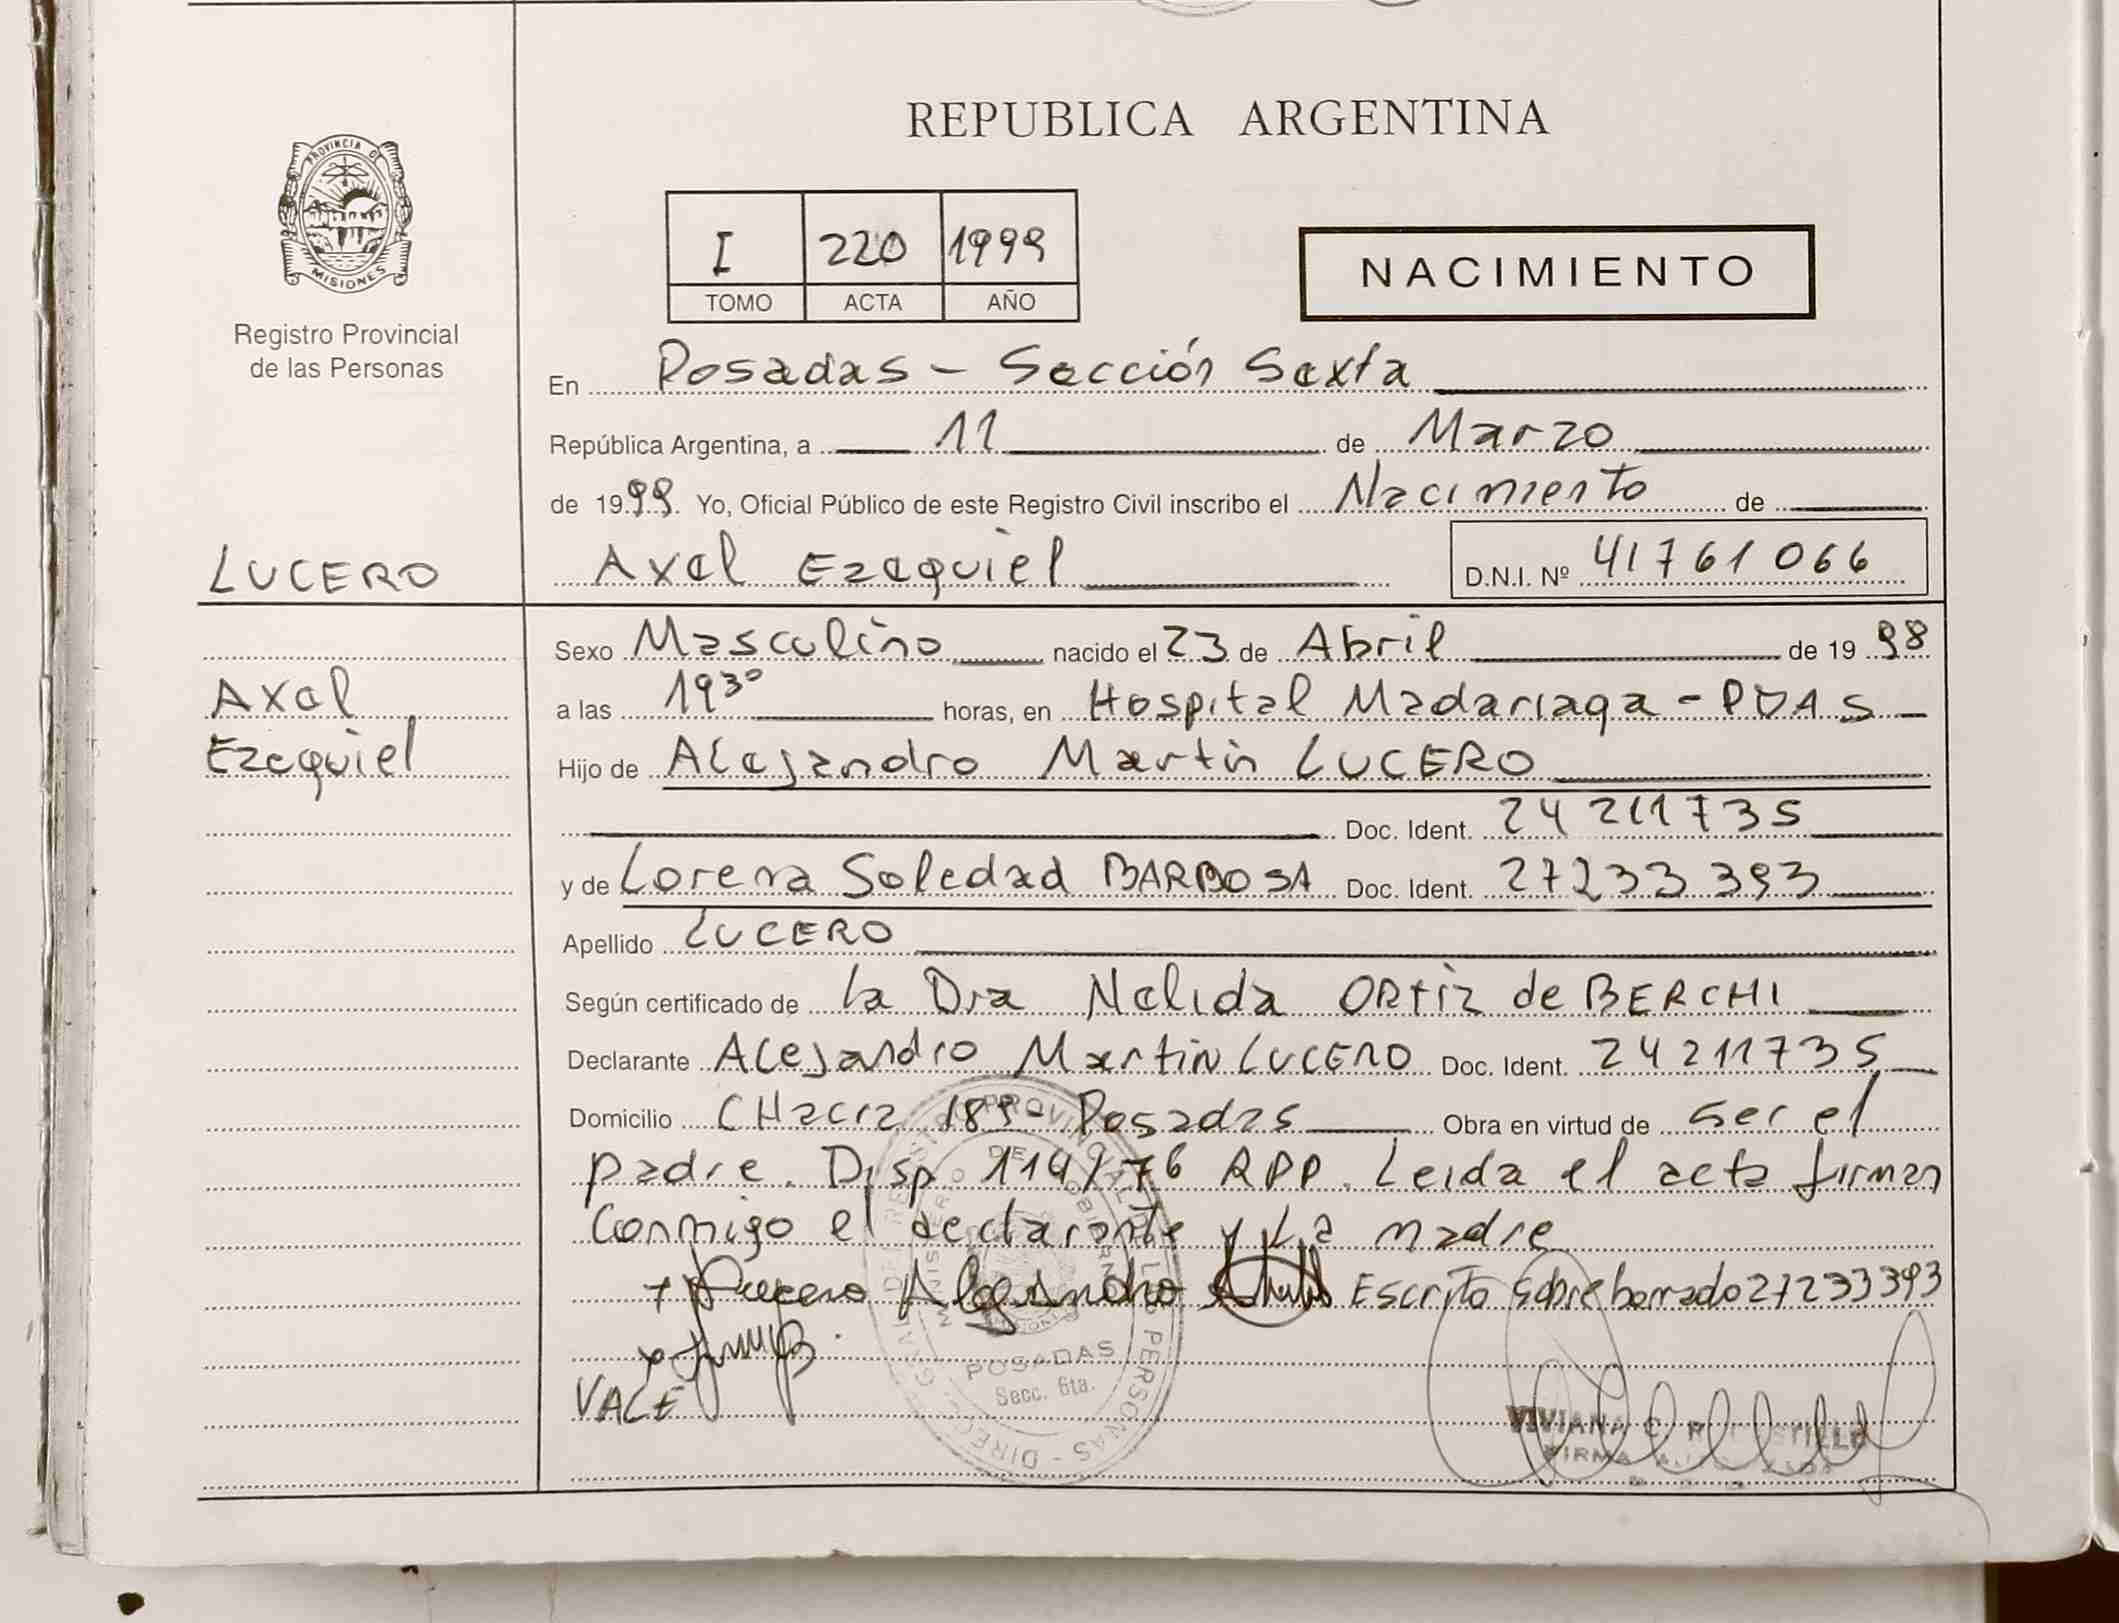 REPUBLICA ARGENTINA
PROVINCIA DE
MISIONES
Registro Provincial
de las Personas
I 220 1999
TOMO ACTA AÑO
NACIMIENTO
En Posadas - Sección Sexta
República Argentina, a 11 de Marzo
de 1999. Yo, Oficial Público de este Registro Civil inscribo el Nacimiento de
LUCERO
Axel Ezequiel D.N.I. Nº 41761066
Sexo Masculino nacido el 23 de Abril de 1998
Axel
Ezequiel
a las 1930 horas, en Hospital Madariaga - PDAS
Hijo de Alejandro Martin LUCERO
Doc. Ident. 24211735
y de Lorena Soledad BARBOSA Doc. Ident. 27233393
Apellido LUCERO
Según certificado de La Dra Nelida ORTIZ de BERCHI
Declarante Alejandro Martin LUCERO Doc. Ident. 24211735
Domicilio CHacra 189 - Posadas Obra en virtud de ser el
padre. Disp 1149/76 RPP. Leida el acta firman
Conmigo el declarante y La madre
Lucero Alejandro Escrito sobre borrado 27233393
VALE
POSADAS
Secc. 6ta.
VIVIANA C.
FIRMA